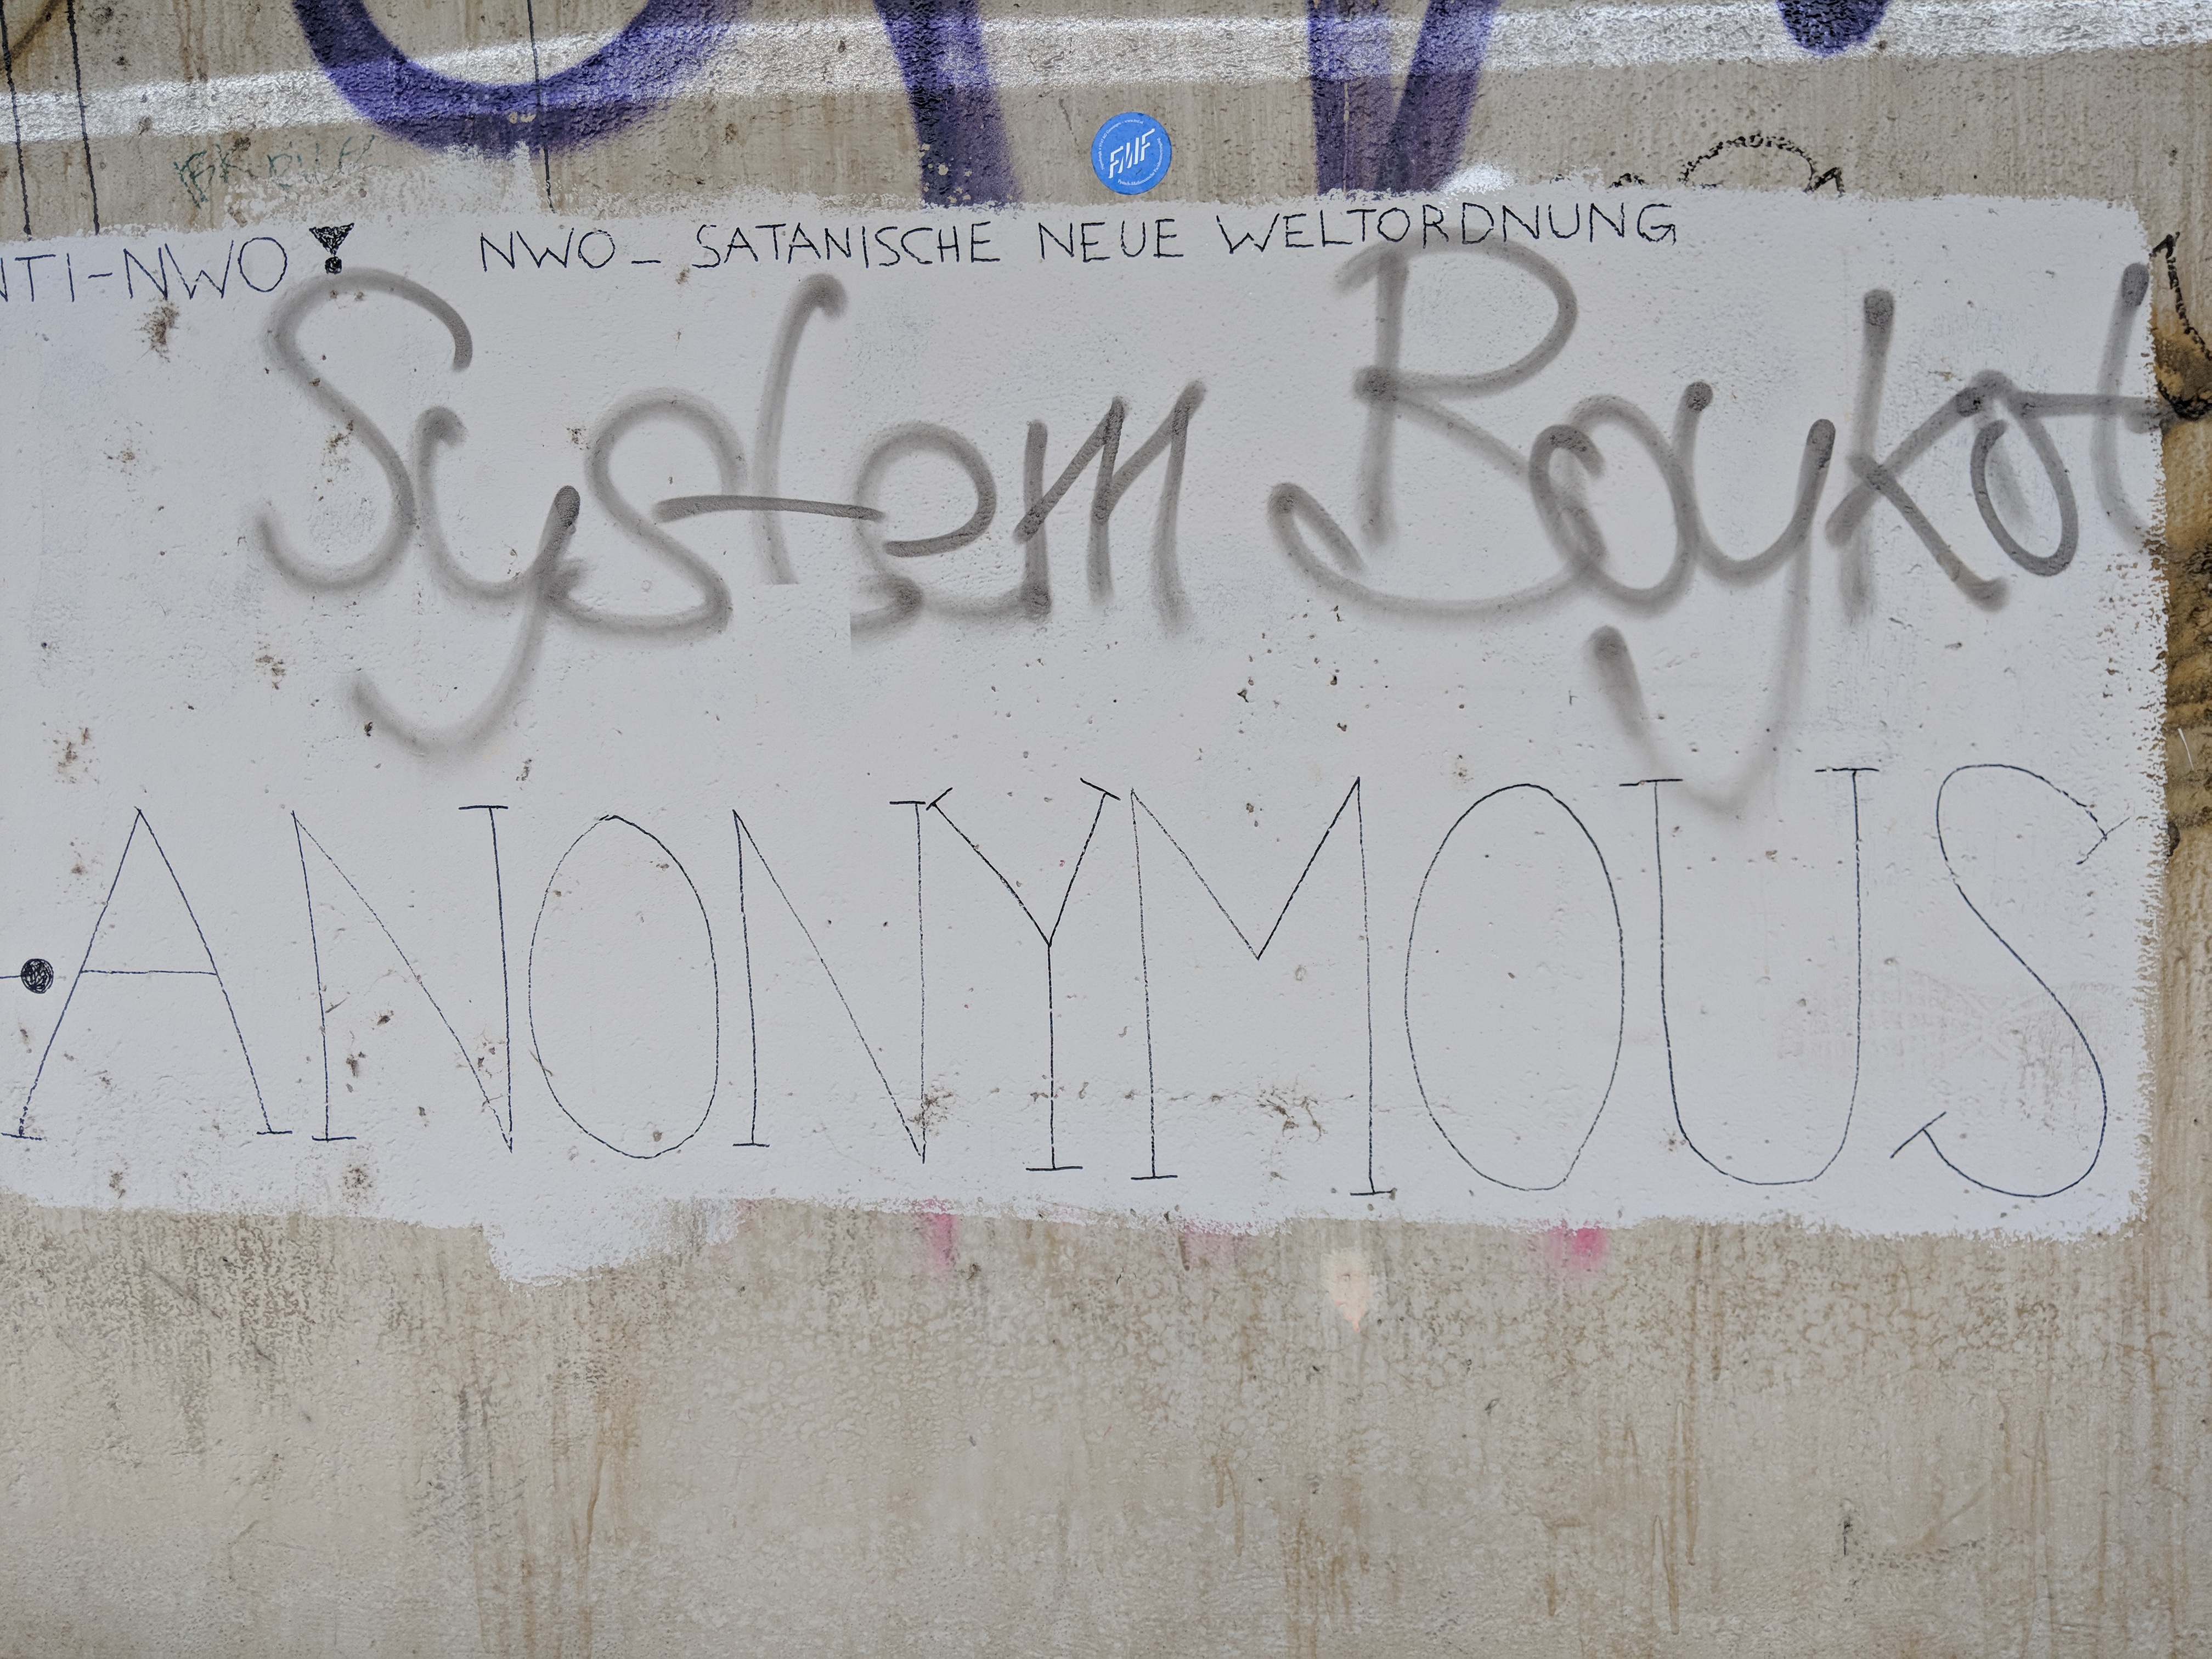 FMF
NTI-NWO! NWO_ SATANISCHE NEUE WELTORDNUNG
System Boykot
ANONYMOUS